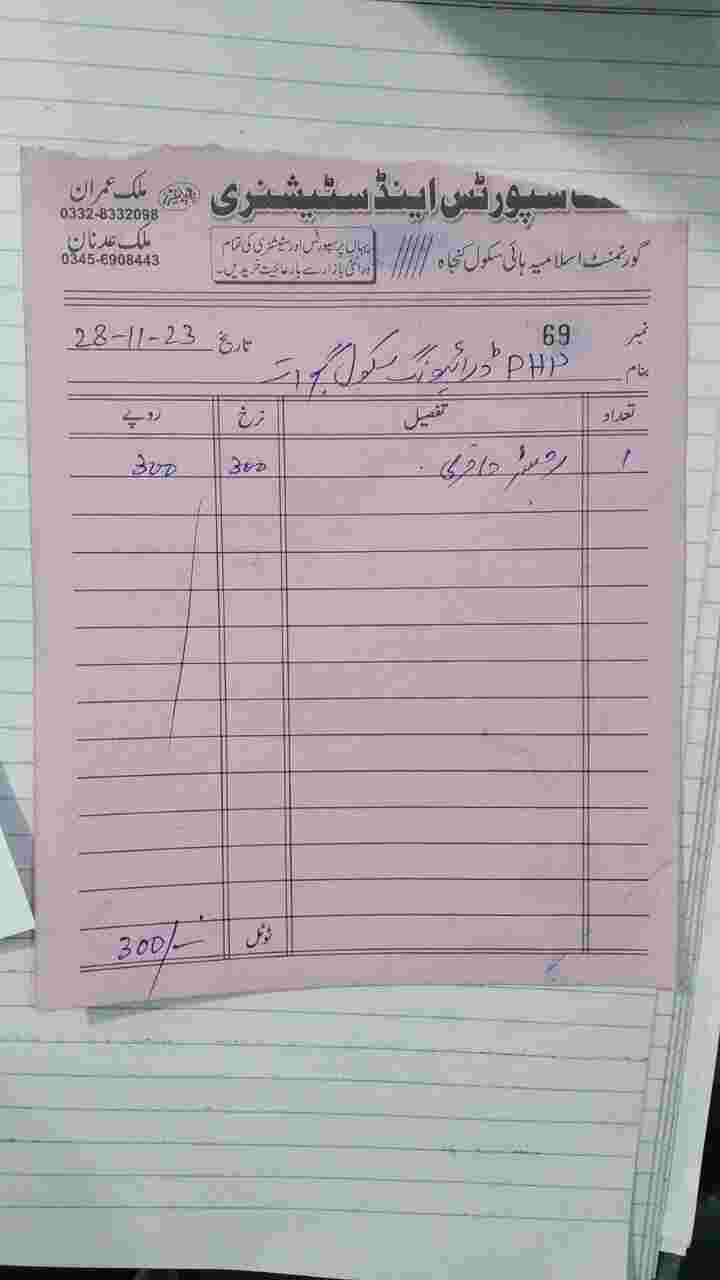 سپورٹس اینڈ سٹیشنری
ملک عمران
0332-8332098
ملک عدنان
0345-6908443
گورنمنٹ اسلامیہ ہائی سکول کنجاہ
یہاں پر سپورٹس اور سٹیشنری کی تمام
ورائٹی بازار سے بارعائیت خریدیں۔
نمبر 69 تاریخ 28-11-23
بنام PHP ڈرائیونگ سکول گجرات
تعداد تفصیل نرخ روپے
1 رجسٹر حاضری 300 300
ٹوٹل 300/-